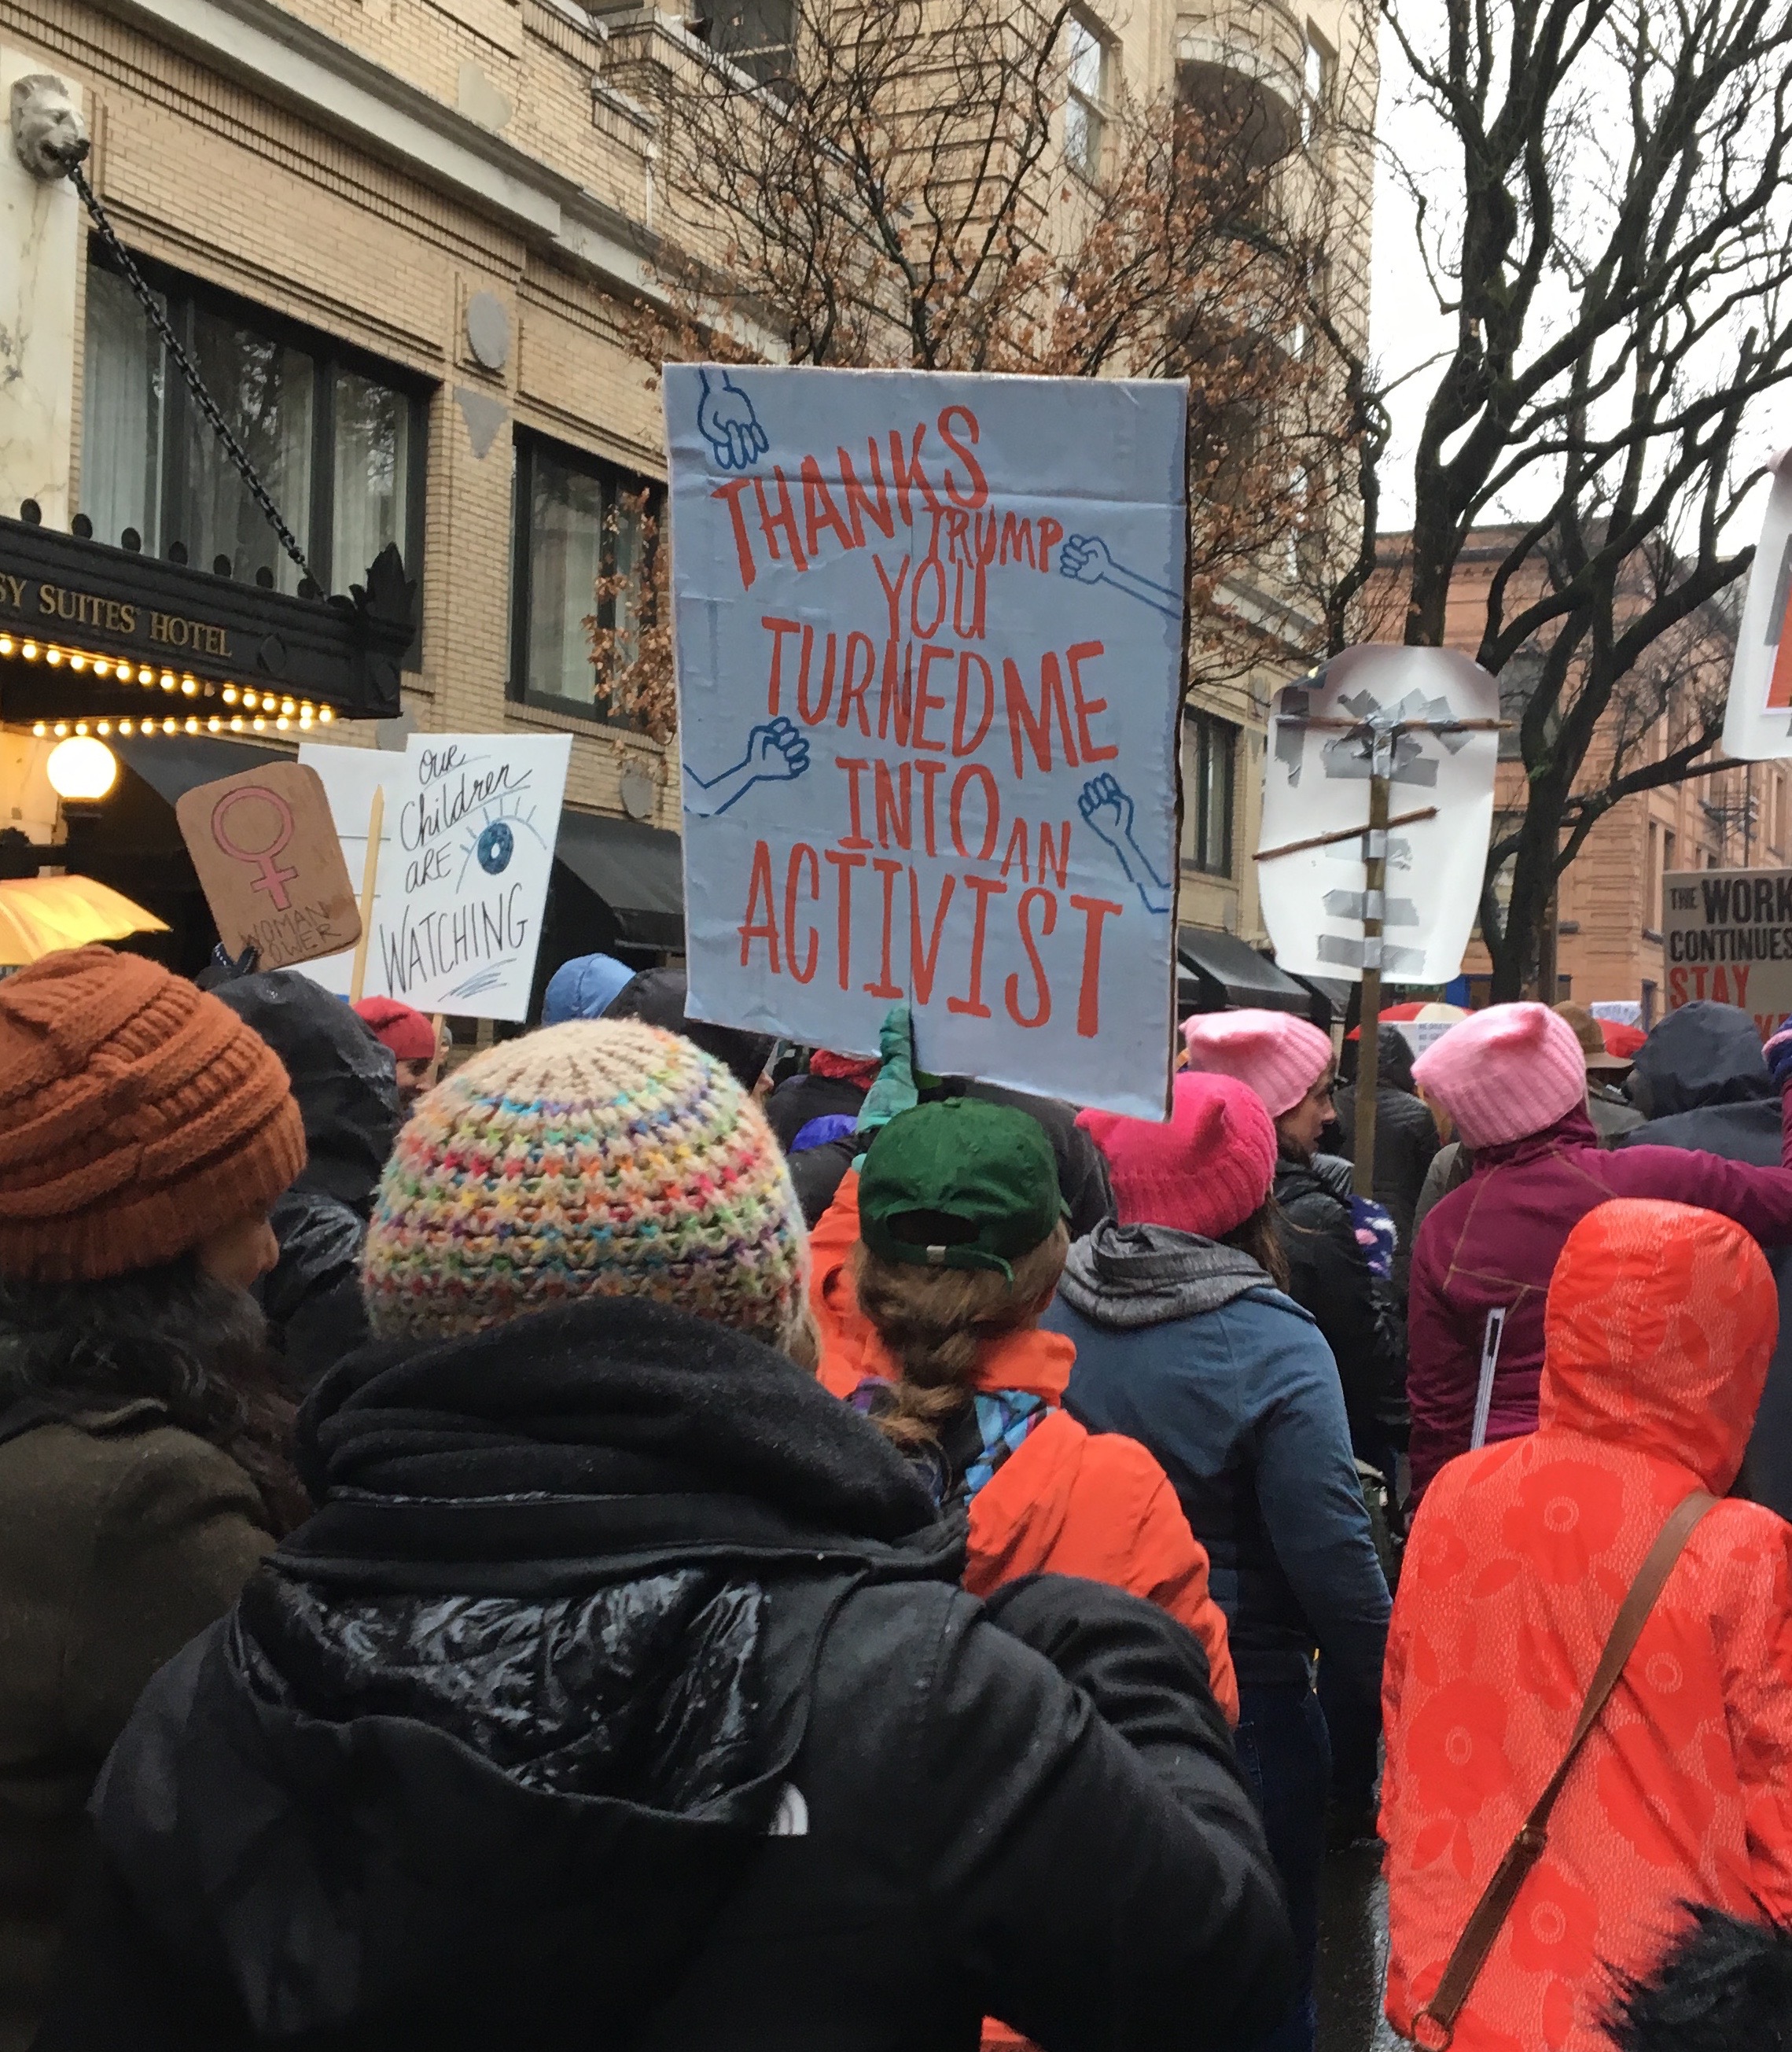 SY SUITES HOTEL
WOMAN
POWER
OUR
Children
ARE
WATCHING
THANKS
TRUMP
YOU
TURNED ME
INTO AN
ACTIVIST
THE WORK
CONTINUES
STAY